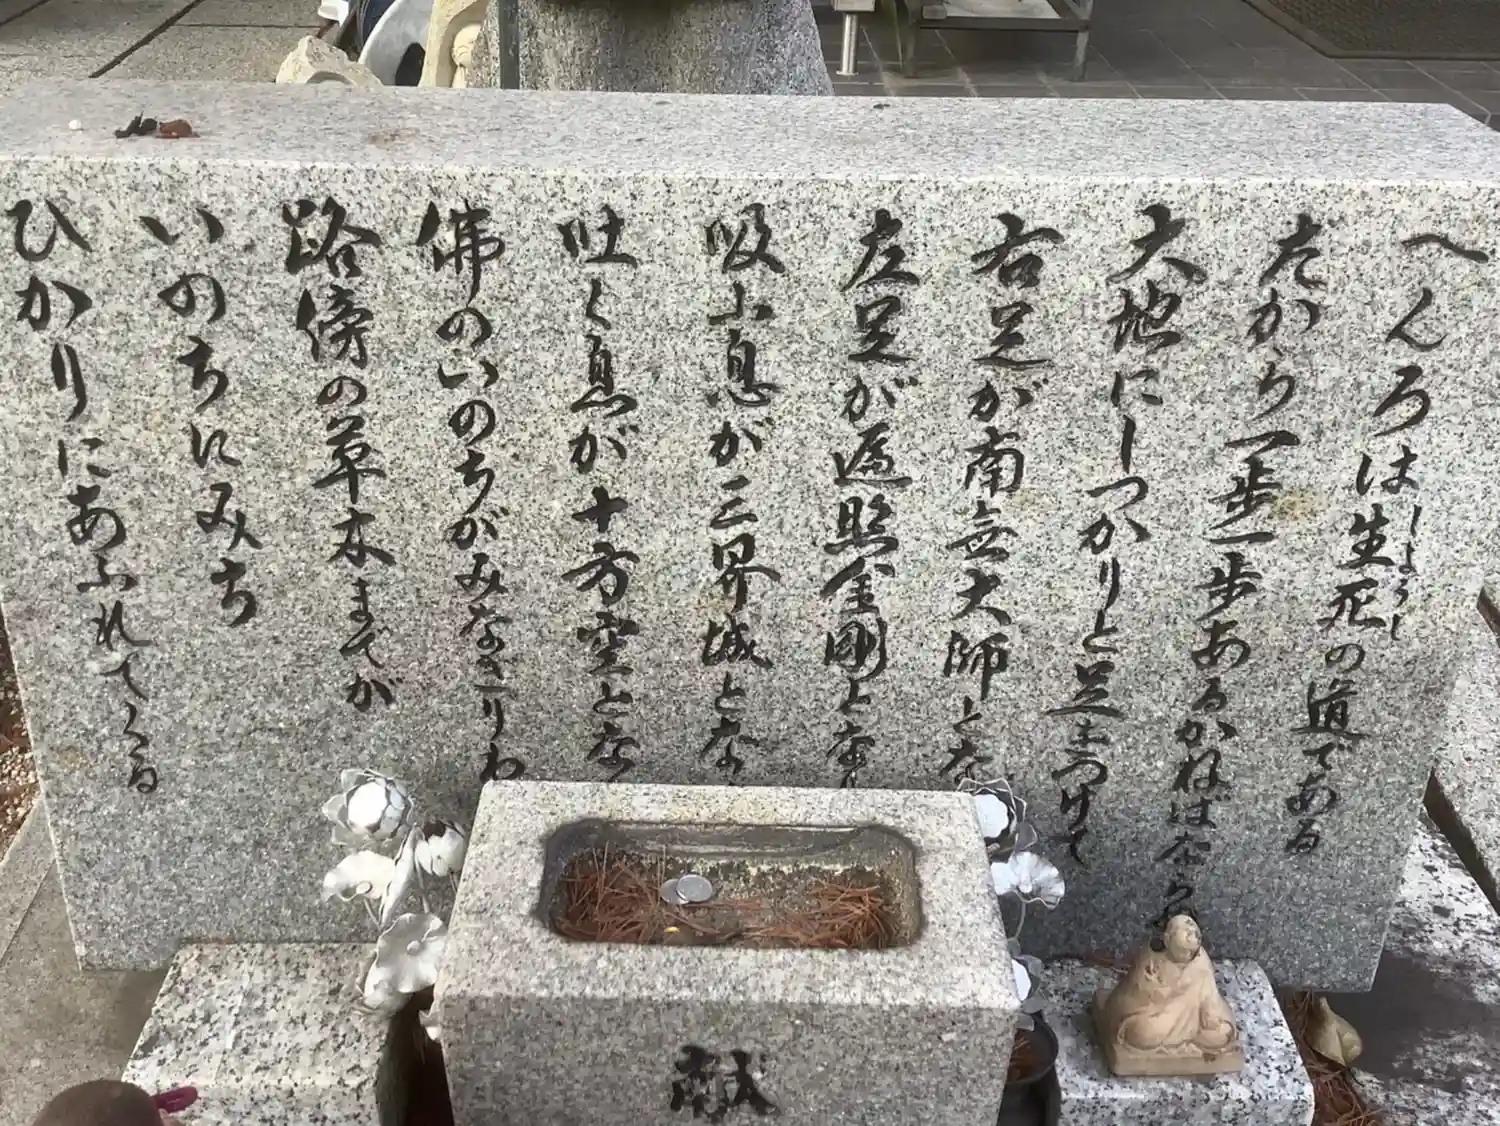 へんろは生死の道である
しょうし
だから一歩一歩あるかねばなら
大地にしつかりと足をつけて
右足が南無大師とな
左足が遍照金剛とな
吸ふ息が三界城とな
吐く息が十方空とな
佛のいのちがみなぎりわ
路傍の草木までが
いのちにみち
ひかりにあふれてくる
献